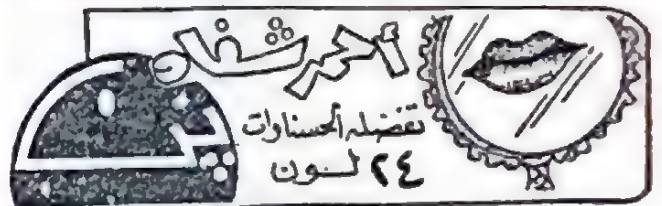 أحمر شفاه
تفضله الحسناوات
٢٤ لــون